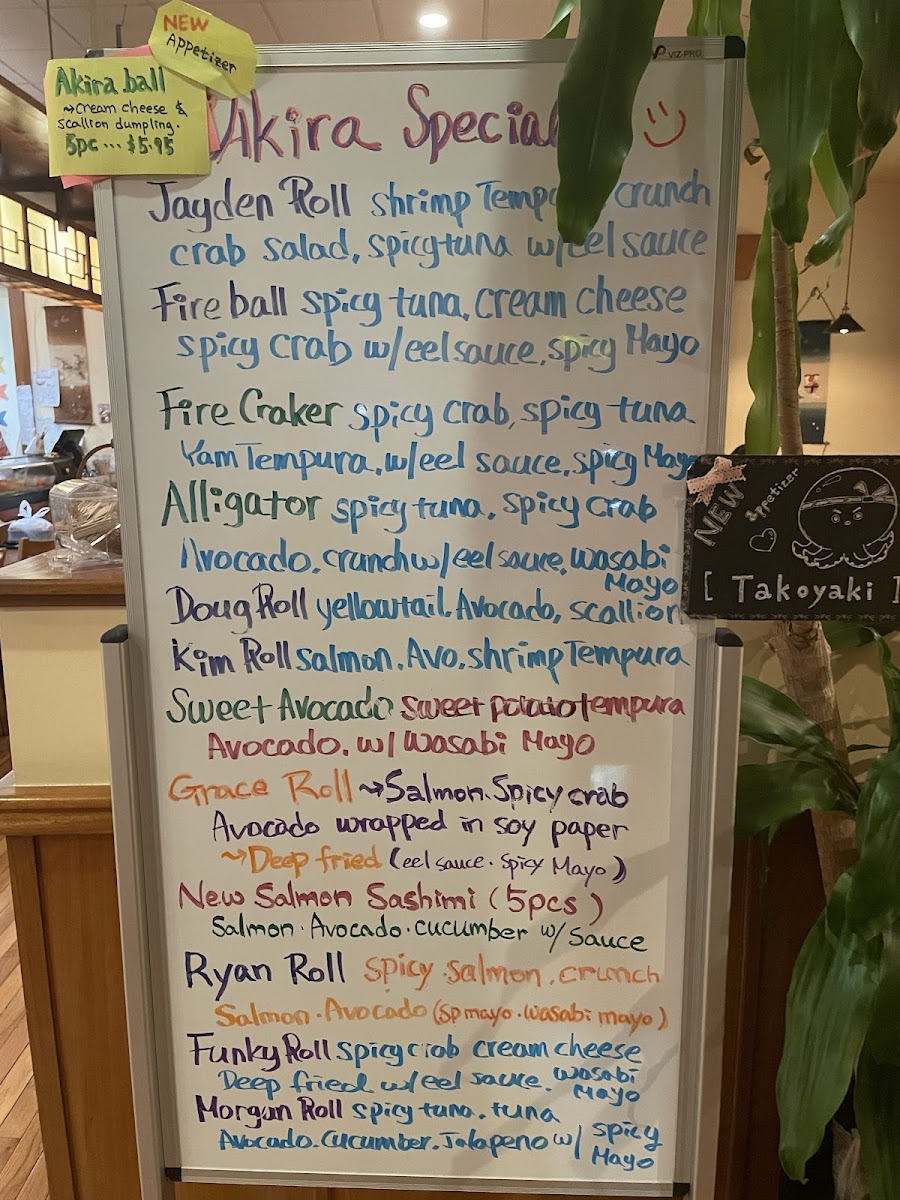 NEW
Appetizer
Akira ball
~>cream cheese &
scallion dumpling.
5pc ... $5.95
VIZ-PRO
Akira Special
Jayden Roll shrimp crunch
crab salad, spicy tuna w/eel sauce
Fire ball spicy tuna, cream cheese
spicy crab w/eel sauce, spicy Mayo
Fire Craker spicy crab, spicy tuna
Yam Tempura, w/eel sauce, spicy Mayo
Alligator spicy tuna, spicy crab
Avocado, crunch w/eel sauce, wasabi
Mayo
Doug Roll yellowtail, Avocado, scallion
Kim Roll salmon, Avo, shrimp Tempura
Sweet Avocado sweet potato tempura
Avocado, w/ wasabi Mayo
Grace Roll ~>Salmon. Spicy crab
Avocado wrapped in soy paper
~>Deep fried (eel sauce. Spicy Mayo)
New Salmon Sashimi (5pcs)
Salmon. Avocado. cucumber w/ Sauce
Ryan Roll spicy. salmon. crunch
Salmon. Avocado (sp mayo. wasabi mayo)
Funky Roll spicy crab cream cheese
Deep fried w/eel sauce. wasabi
Mayo
Morgan Roll spicy tuna. tuna
Avocado. Cucumber. Jalapeno w/ spicy
Mayo
NEW
Appetizer
[ Takoyaki ]